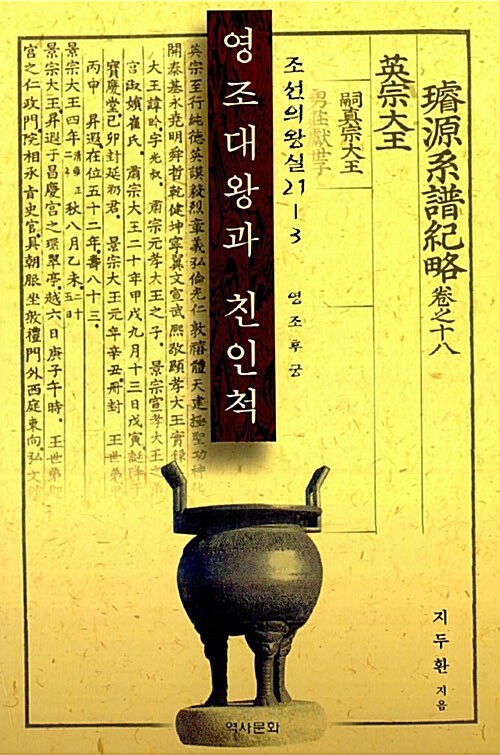 영조대왕과 친인척
조선의 왕실 21-3
영조후궁
璿源系譜紀略 卷之十八
英宗大王
嗣眞宗大王
男莊獻世子
英宗至行純德英謨毅烈章義弘倫光仁敦禧體天建極聖功神化
開泰基永堯明舜哲乾健坤寧翼文宣武熙敬顯孝大王實錄
大王諱昑字光叔 肅宗元孝大王之子 景宗宣孝大王之
宮淑嬪崔氏 肅宗大王二十年甲戌九月十三日戊寅誕降于
寶慶堂己卯封延礽君 景宗大王元年辛丑冊封 王世弟
丙申 昇遐在位五十二年壽八十三
景宗大王四年 秋八月乙未
景宗大王昇遐于昌慶宮之環翠亭越六日庚子午時 王世弟
宮之仁政門院相承旨史官具朝服坐敦禮門外西庭東向弘文
지두환 지음
역사문화